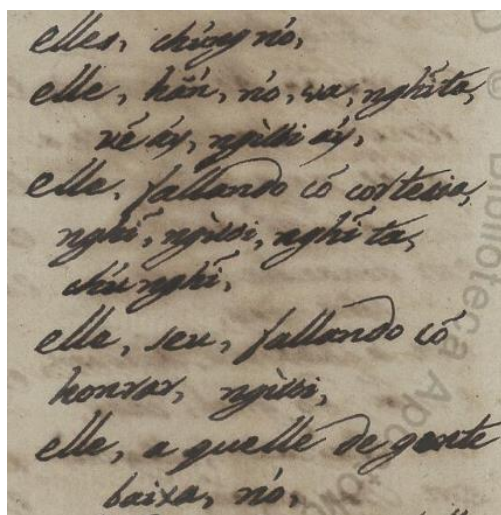 elles, chúng nó,
elle, hắn, nó, va, nghĩ ta,
vê áy, ngừi áy,
elle, fallando cõ cortesia,
nghĩ, ngừi, nghĩ ta,
chú nghĩ,
elle, seu, fallando cõ
honrar, ngừi,
elle, a quelle de gente
baixa, nó,
Biblioteca Apo